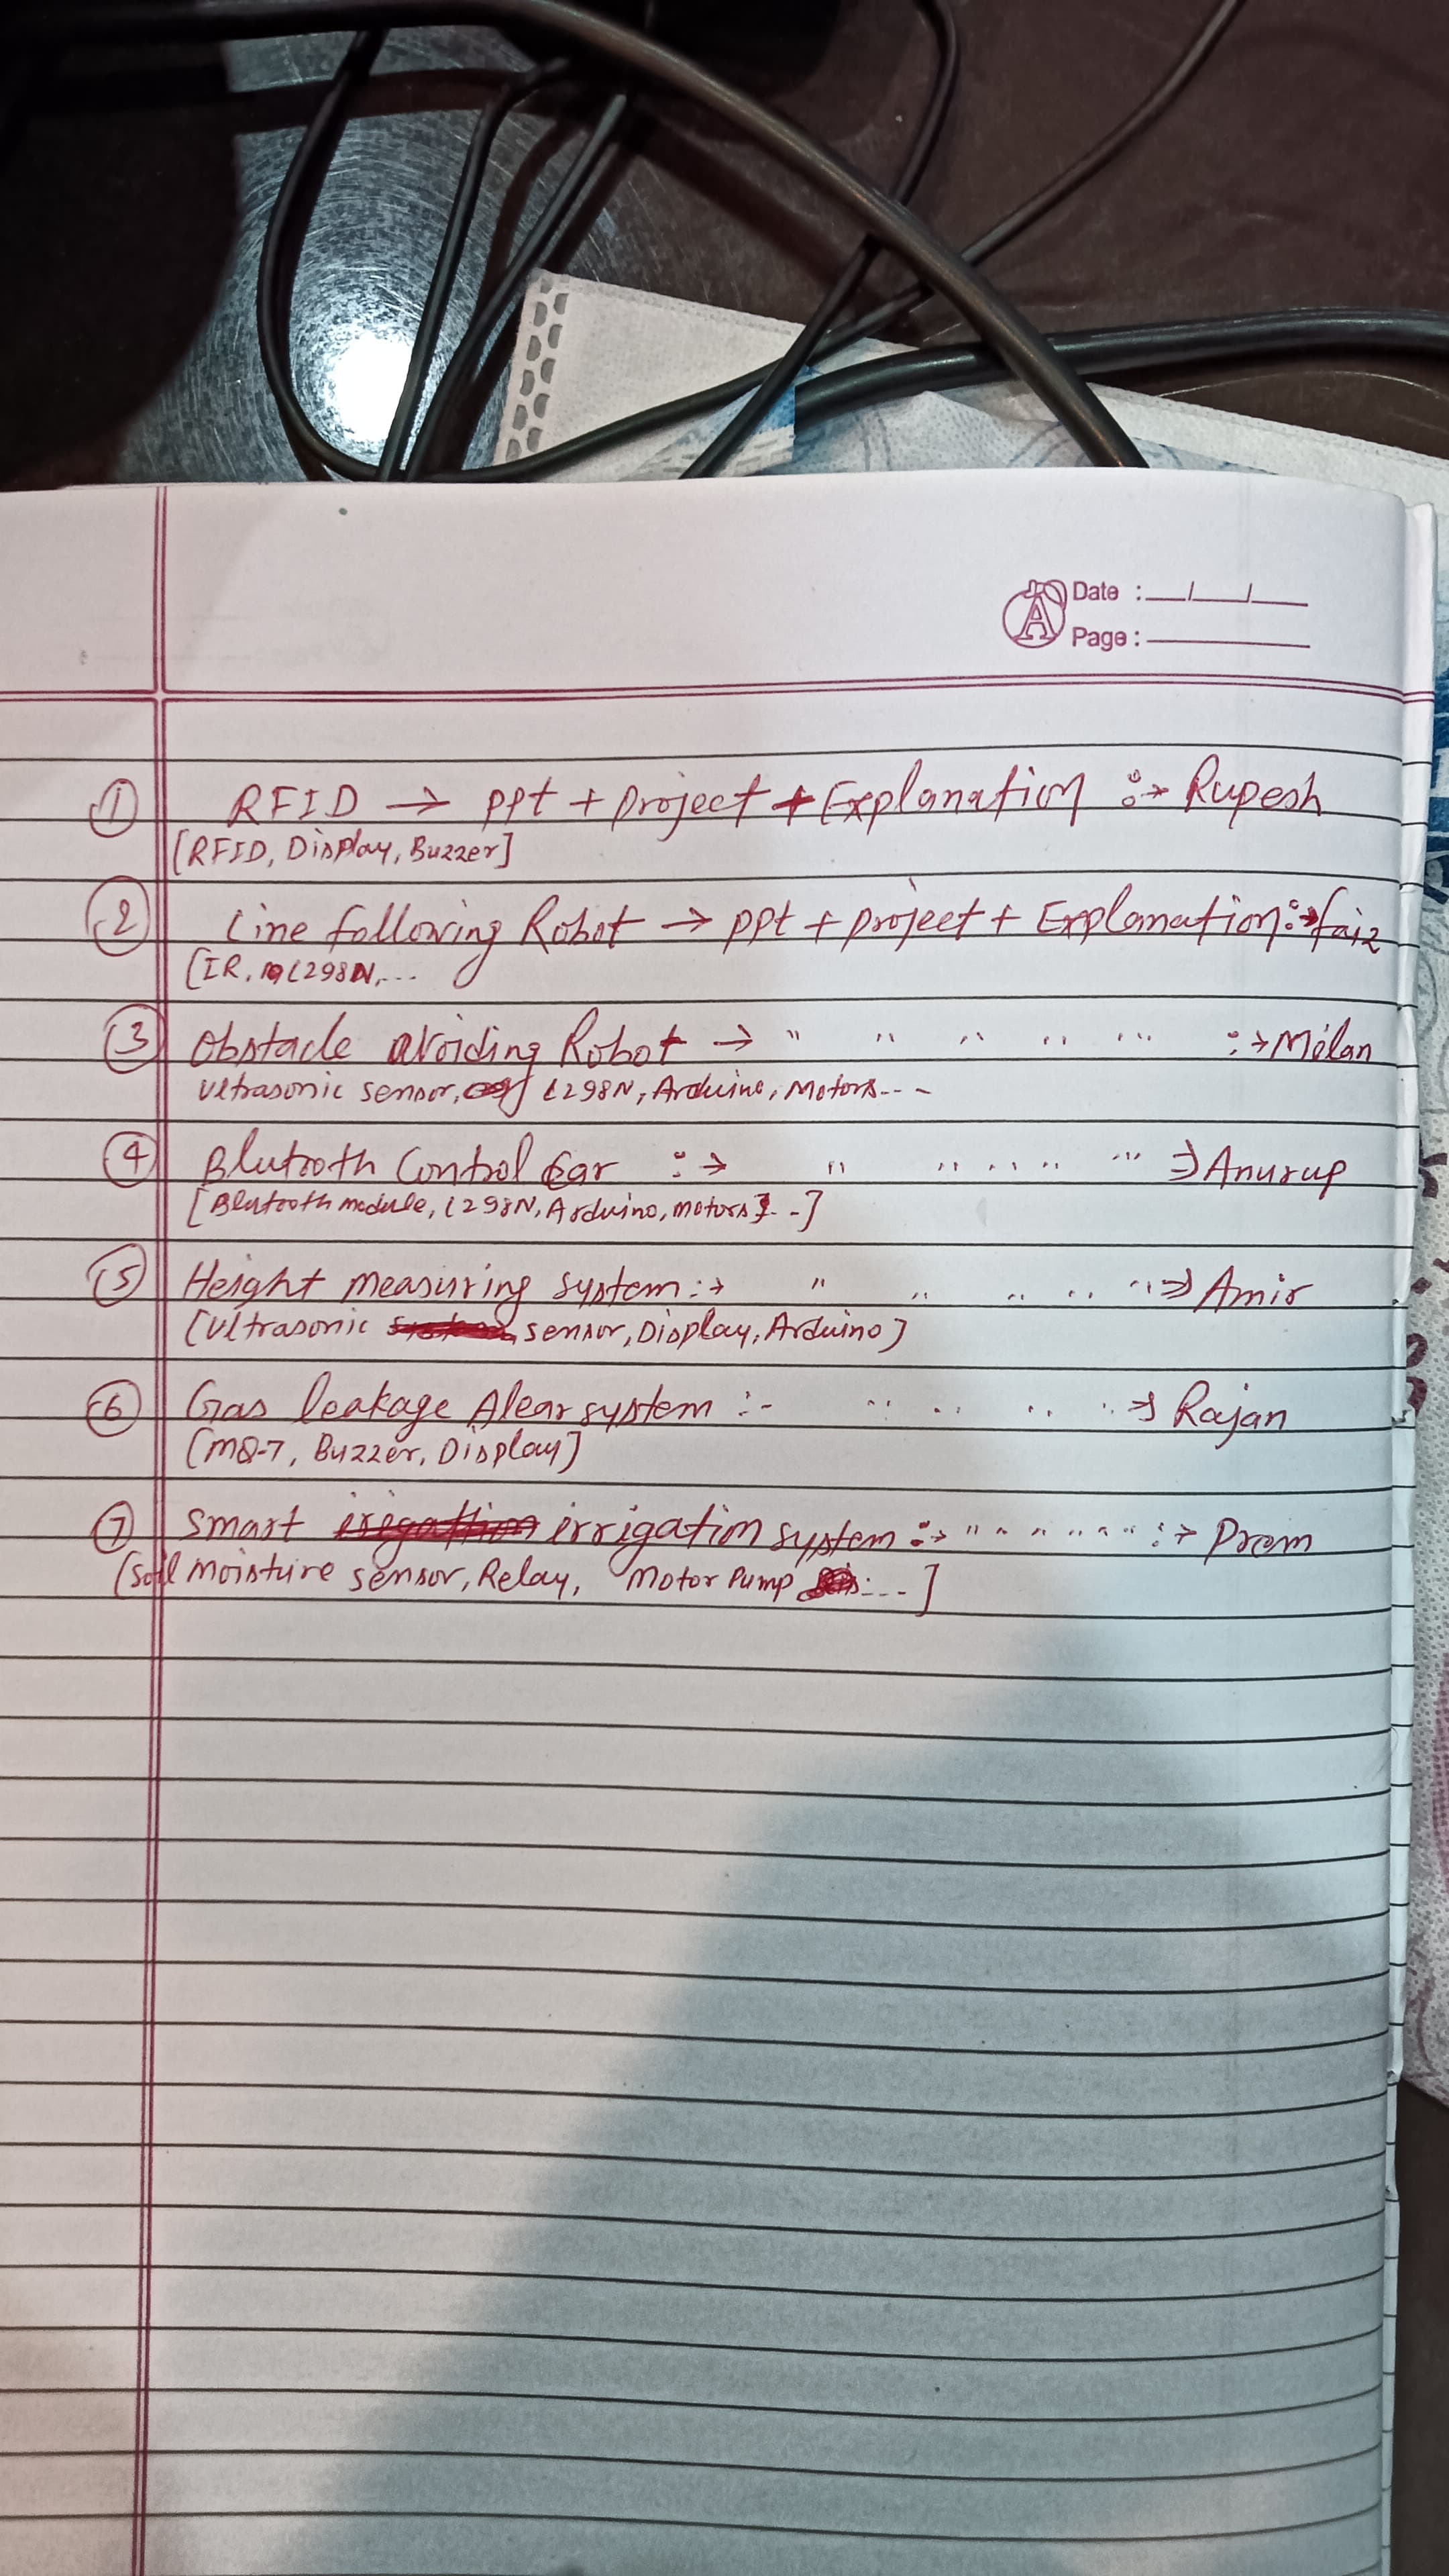 A Date : __/__/__
Page :
① RFID → ppt + project + Explanation :→ Rupesh
[RFID, Display, Buzzer]
② Line following Robot → ppt + project + Explanation :→ faiz
[IR, L298N, ...
③ Obstacle avoiding Robot → " " " " " :→ Milan
Ultrasonic sensor, L298N, Arduino, Motors---
④ Blutooth Control Car :→ " " " " " ⇒ Anurup
[Blutooth module, L298N, Arduino, motors...]
⑤ Height measuring system :→ " " " " " ⇒ Amir
[Ultrasonic sensor, Display, Arduino]
⑥ Gas leakage Alear system :- " " " " ⇒ Rajan
[MQ-7, Buzzer, Display]
⑦ Smart irrigation system :→ " " " " " " :→ Prem
[Soil moisture sensor, Relay, Motor Pump ...]